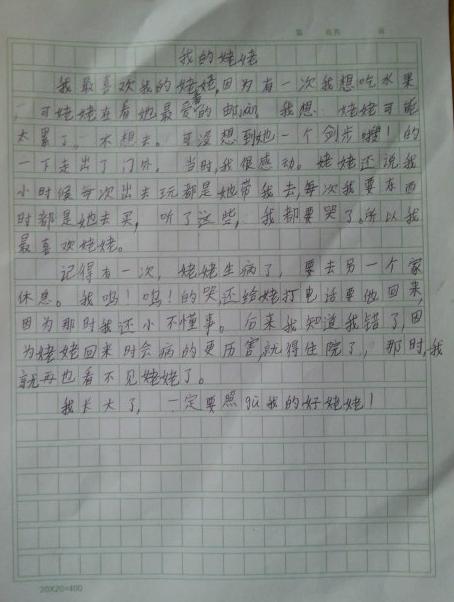 我的姥姥
我最喜欢我的姥姥,因为有一次我想吃水果
,可姥姥在看她最爱看的电视,我想,姥姥可能
太累了。不想去。可没想到她一个剑步嗖!的
一下走出了门外。当时,我很感动。姥姥还说我
小时候每次出去玩都是她带我去,每次我要东西
时都是她去买,听了这些,我都要哭了。所以我
最喜欢姥姥。
记得有一次,姥姥生病了,要去另一个家
休息。我呜!呜!的哭,还给姥打电话要她回来,
因为那时我还小不懂事。后来我知道我错了,因
为姥姥回来时会病的更厉害,就得住院了,那时,我
就再也看不见姥姥了。
我长大了,一定要照gù我的好姥姥!
20X20=400